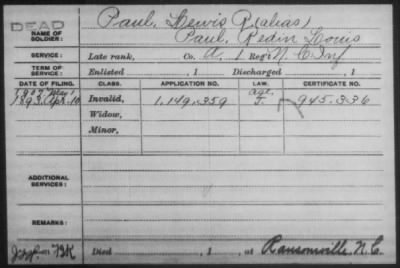 DEAD
Paul, Lewis R (alias)
NAME OF SOLDIER:
Paul, Redin Louis
SERVICE:
Late rank, Co. A, 1 Reg't N.C. Inf
TERM OF SERVICE:
Enlisted , 1 Discharged , 1
DATE OF FILING. CLASS. APPLICATION NO. LAW. CERTIFICATE NO.
1907 May 1 age.
1893, Apr. 10 Invalid, 1.149.359 945.336
Widow,
Minor,
ADDITIONAL SERVICES:
REMARKS:
Died , 1 , at Ransomville, N.C.